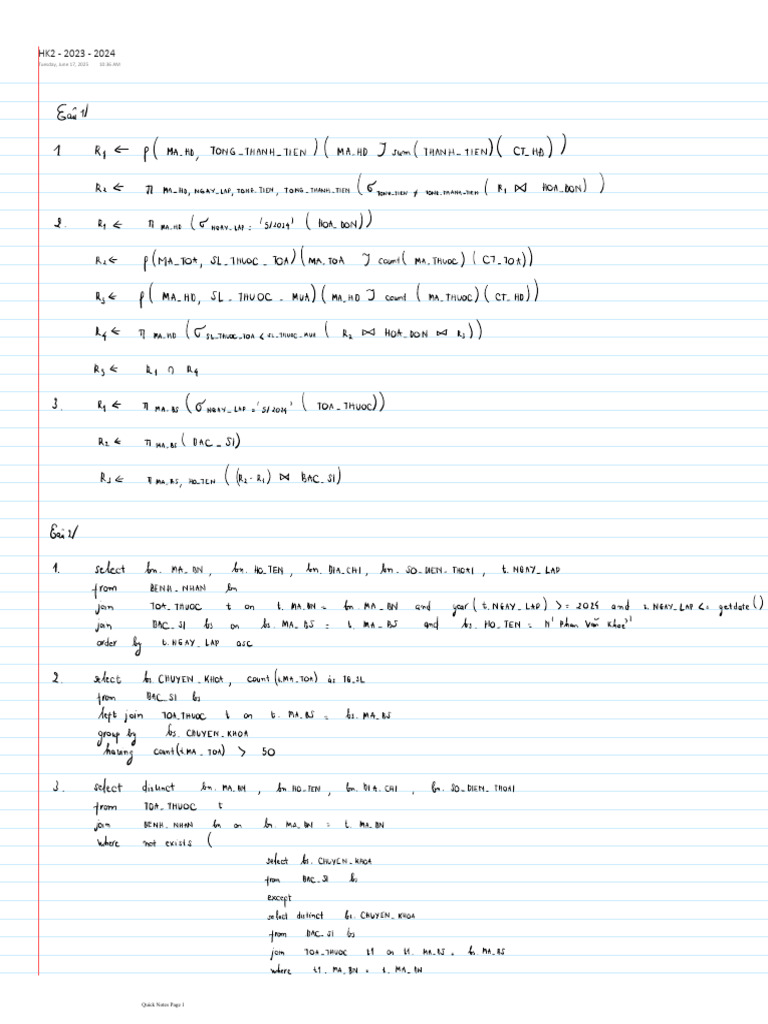 HK2 - 2023 - 2024
Tuesday, June 17, 2025 10:36 AM
Câu 1/
1 R1 ← ρ( MA_HD, TONG_THANH_TIEN )( MA_HD ℑ sum( THANH_TIEN)( CT_HĐ ) )
R2 ← π MA_HD, NGAY_LAP, TONG_TIEN, TONG_THANH_TIEN ( σ TONG_TIEN ≠ TONG_THANH_TIEN ( R1 ⋈ HOA_DON) )
2. R1 ← π MA_HD ( σ NGAY_LAP = '5/2024' ( HOA_DON))
R2 ← ρ(MA_TOA, SL_THUOC_TOA)( MA_TOA ℑ count( MA_THUOC) ( CT_TOA))
R3 ← ρ( MA_HD, SL_THUOC_MUA)( MA_HD ℑ count ( MA_THUOC)( CT_HD))
R4 ← π MA_HD ( σ SL_THUOC_TOA < SL_THUOC_MUA ( R2 ⋈ HOA_DON ⋈ R3 ))
R5 ← R1 ∩ R4
3. R1 ← π MA_BS ( σ NGAY_LAP = '5/2024' ( TOA_THUOC))
R2 ← π MA_BS ( BAC_SI)
R3 ← π MA_BS, HO_TEN ( (R2 - R1) ⋈ BAC_SI)
Câu 2/
1. select bn. MA_BN , bn. HO_TEN , bn. DIA_CHI , bn. SO_DIEN_THOAI , t. NGAY_LAP
from BENH_NHAN bn
join TOA_THUOC t on t. MA_BN = bn. MA_BN and year( t. NGAY_LAP) >= 2024 and t. NGAY_LAP <= getdate()
join BAC_SI bs on bs. MA_BS = t. MA_BS and bs. HO_TEN = N' Phan Văn Khoẻ'
order by t. NGAY_LAP asc
2. select bs. CHUYEN_KHOA , count (t.MA_TOA) as TG_SL
from BAC_SI bs
left join TOA_THUOC t on t. MA_BS = bs. MA_BS
group by bs. CHUYEN_KHOA
having count(t.MA_TOA) > 50
3. select distinct bn. MA_BN , bn. HO_TEN , bn. DIA_CHI , bn. SO_DIEN_THOAI
from TOA_THUOC t
join BENH_NHAN bn on bn. MA_BN = t. MA_BN
where not exists (
select bs. CHUYEN_KHOA
from BAC_SI bs
except
select distinct bs. CHUYEN_KHOA
from BAC_SI bs
join TOA_THUOC t1 on t1. MA_BS = bs. MA_BS
where t1. MA_BN = t. MA_BN
Quick Notes Page 1